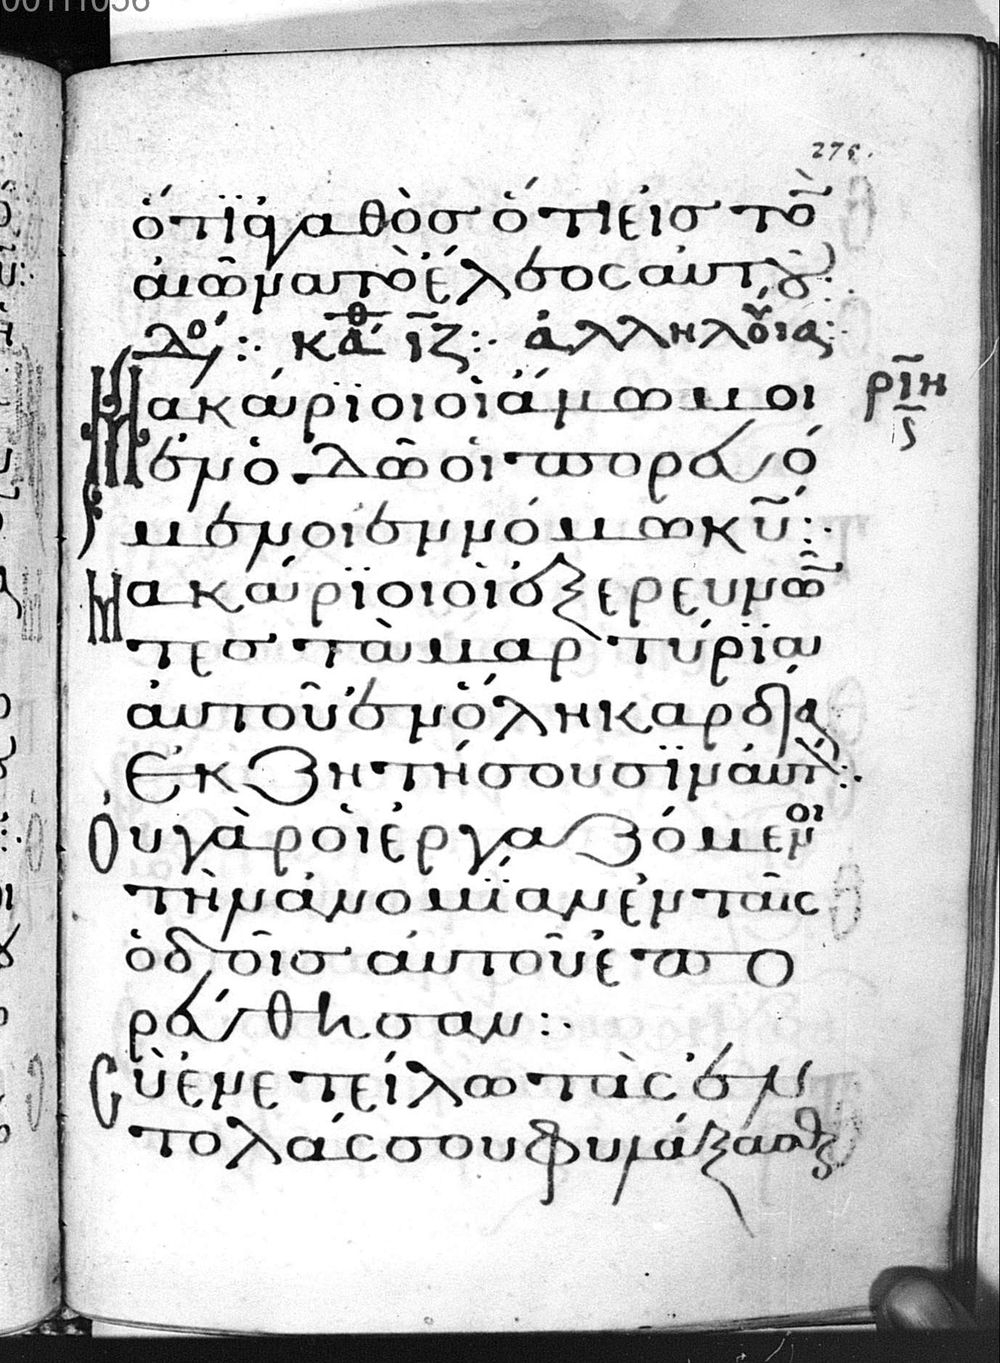 00111056
276.
ὅτϊἀγαθὸσ ὅτιεἰσ τὸν
αἰῶνατὸἔλεοςαὐτοῦ:.
κάθ ιζ:. ἀλληλούϊα:
Μακάριοιοἱἄμωμοι
ριη
ς
ἐνὁδῶοἱπορευό
μενοιἐννόμωκυ:.
Μακάριοιοἱἐξερευνῶν
τεσ τὰμαρτύρϊα
αὐτοῦἐνὅληκαρδία
ἐκζητήσουσϊναὐτ:.
Οὐγὰροἱἐργαζόμενοι
τὴνἀνομίαν ἐνταῖς
ὁδοῖσ αὐτοῦἐπο
ρεύθησαν:.
Σὺἐνετείλω τὰς ἐν
τολάςσουφυλάξασθαι